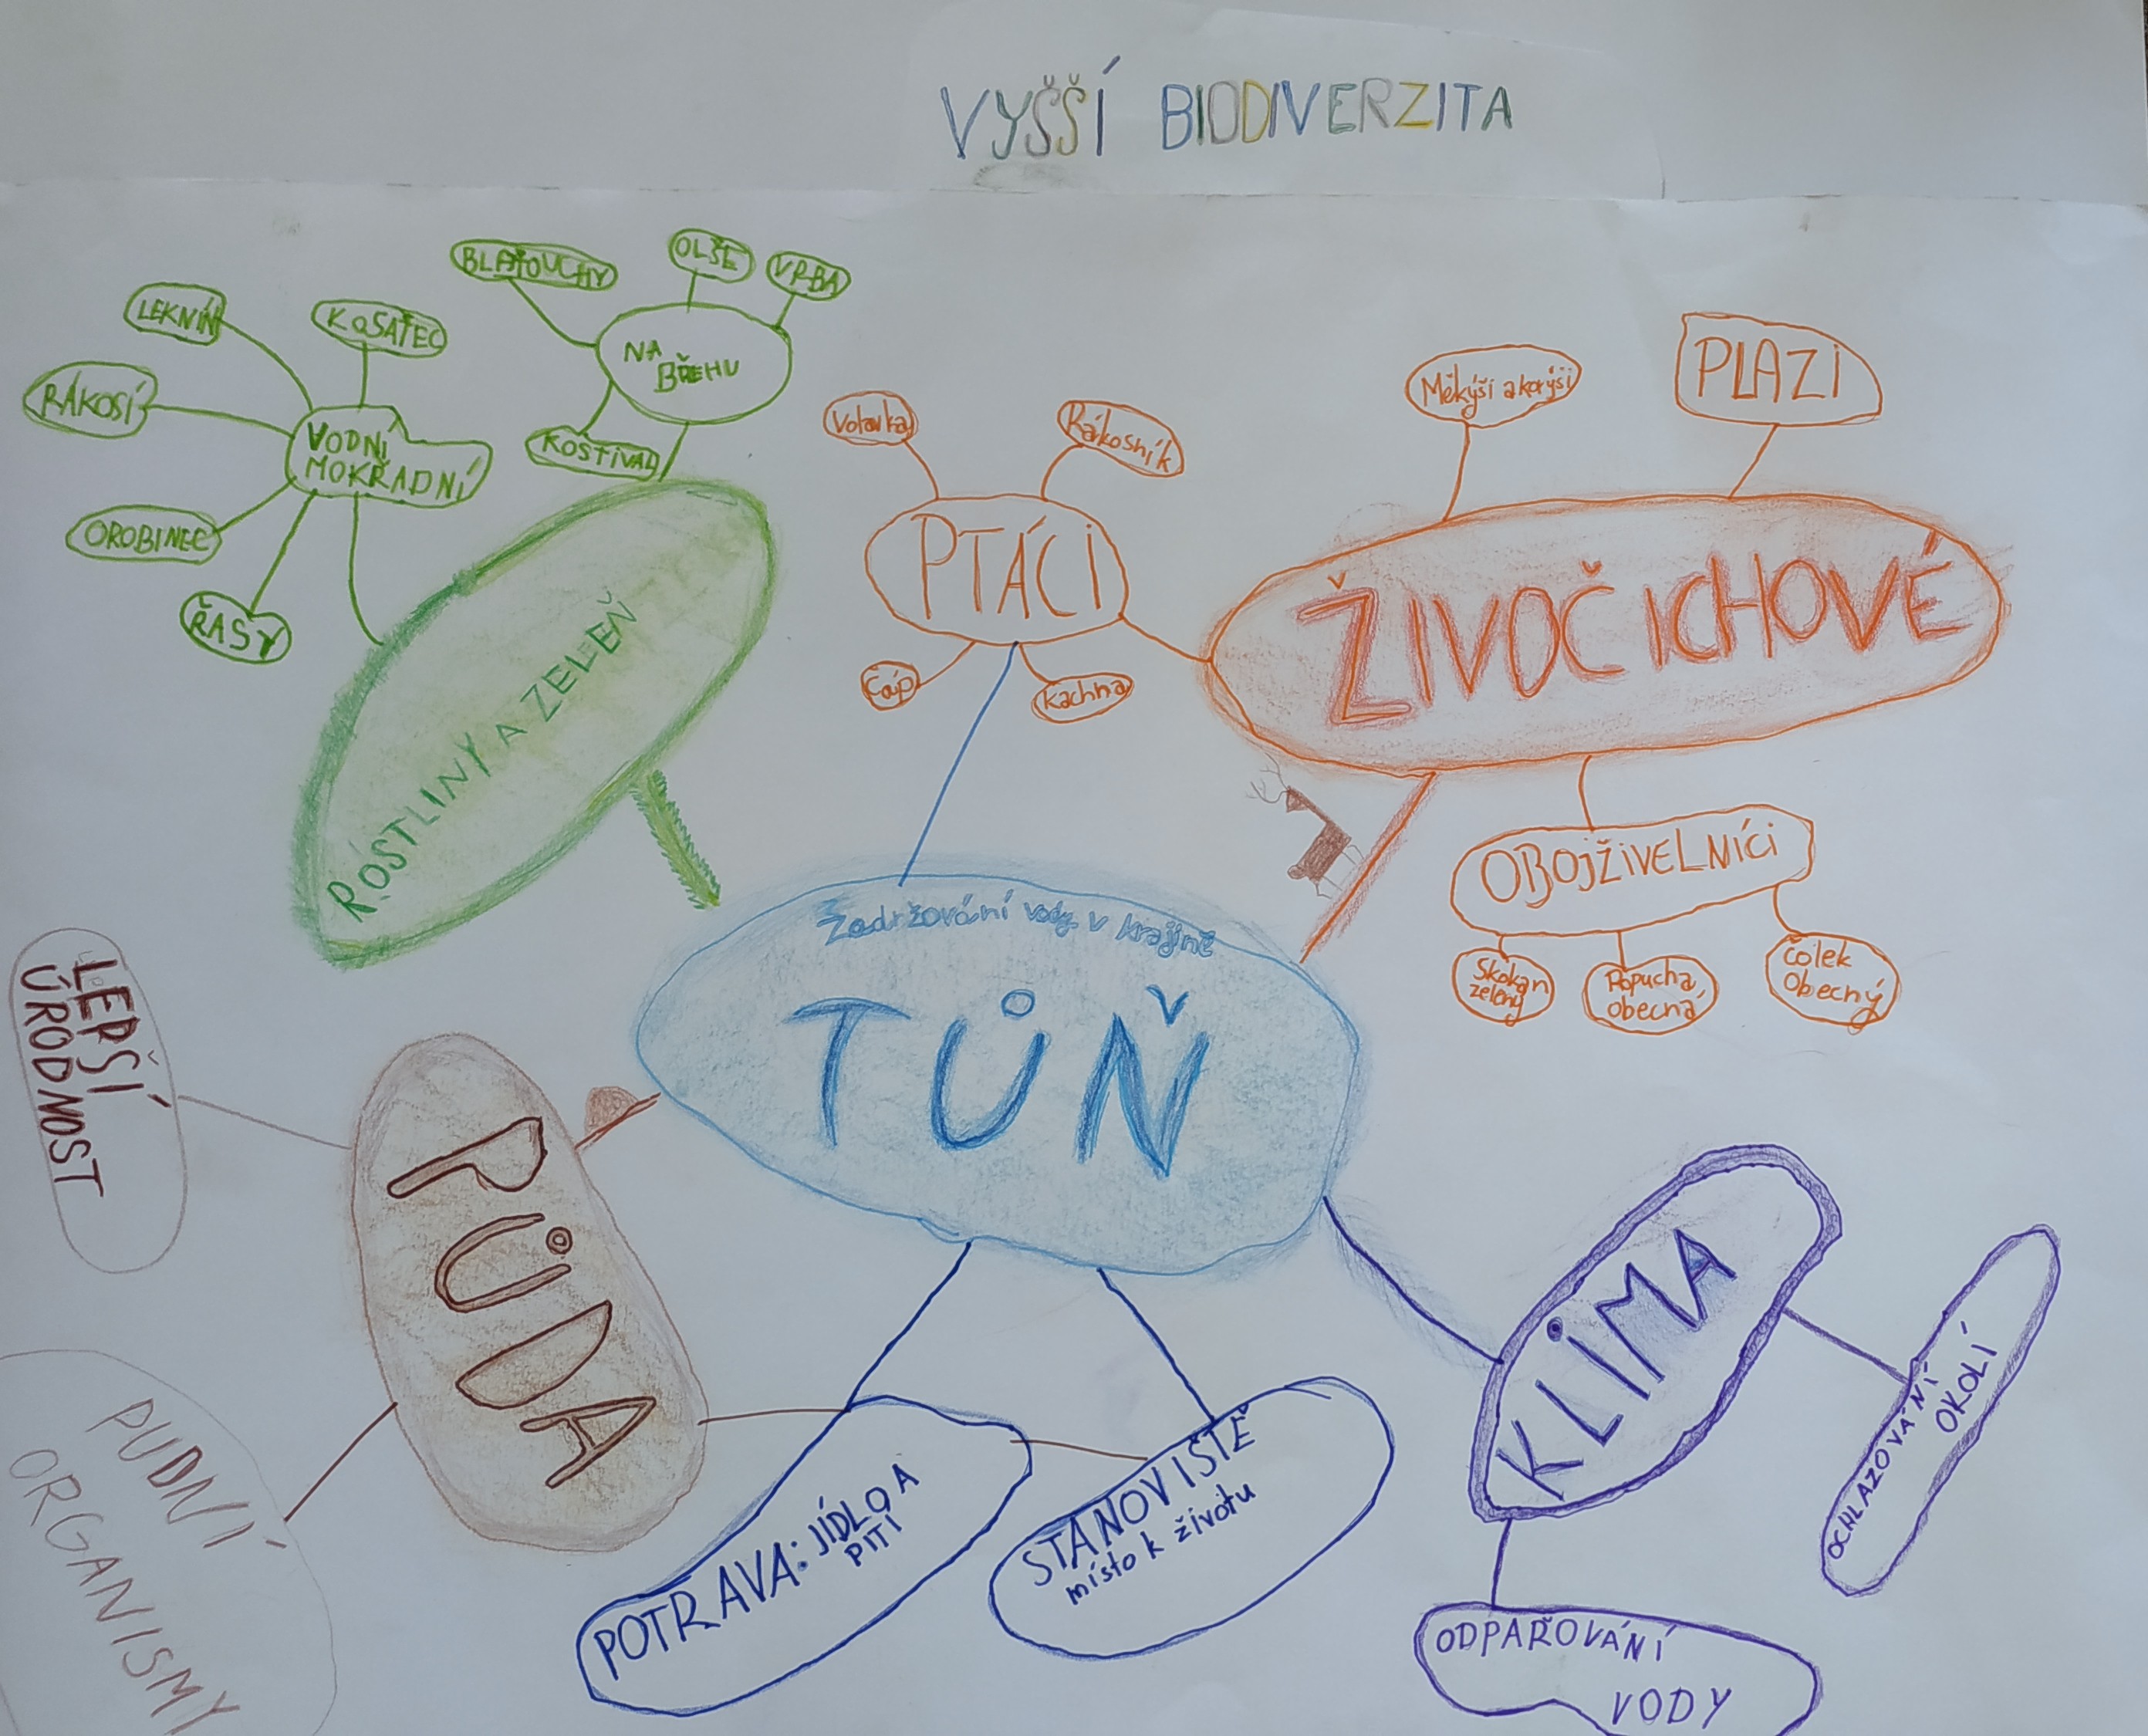 VYŠŠÍ BIODIVERZITA
BLATOUCHY
OLŠE
VRBA
LEKNÍN
KOSATEC
NA
BŘEHU
RÁKOSÍ
VODNÍ
MOKŘADNÍ
KOSTIVAL
OROBINEC
ŘASY
ROSTLINY A ZELEŇ
Volavka
Rákosník
PTÁCI
Čáp
Kachna
Měkýši a korýši
PLAZI
ŽIVOČICHOVÉ
OBOJŽIVELNÍCI
Skokan
zelený
Ropucha
obecná
Čolek
Obecný
Zadržování vody v krajině
TŮŇ
LEPŠÍ
ÚRODNOST
PŮDA
PUDNÍ
ORGANISMY
POTRAVA: JÍDLO A
PITÍ
STANOVIŠTĚ
místo k životu
KLIMA
OCHLAZOVÁNÍ
OKOLÍ
ODPAŘOVÁNÍ
VODY